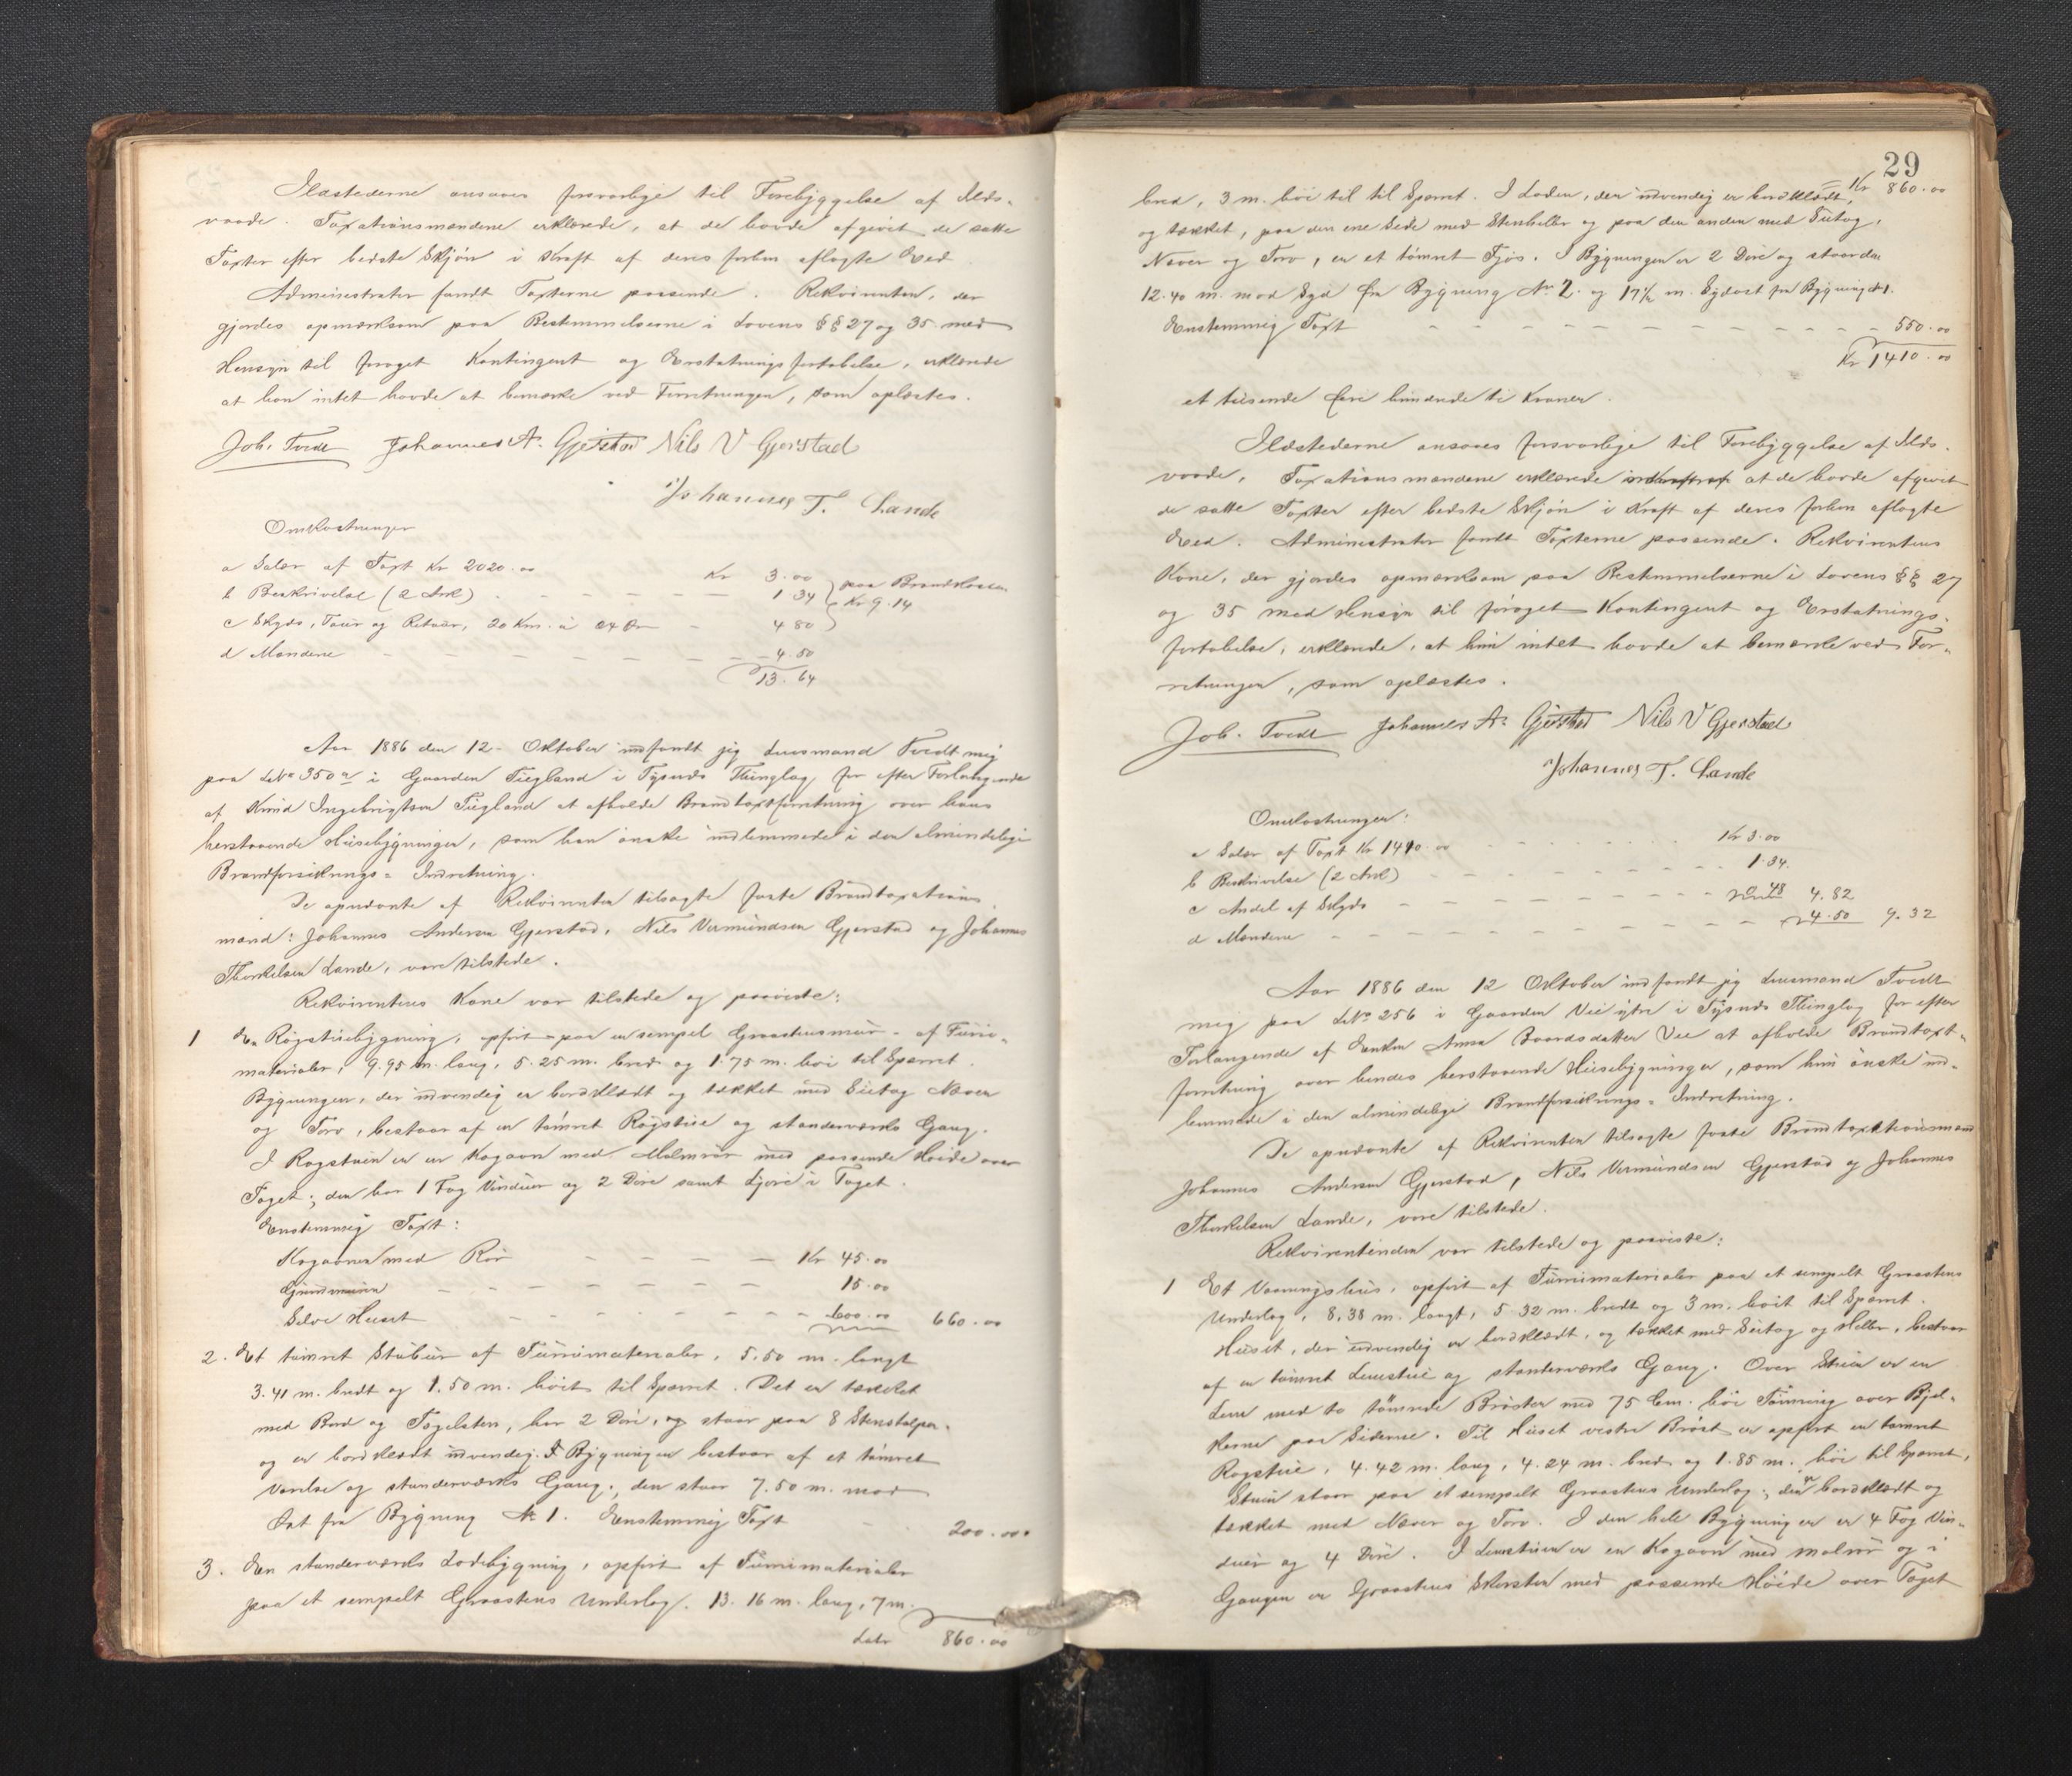 Ildstederne ansaaes forsvarlige til Forebyggelse af Ilds-
vaade. Taxationsmændene erklærede, at de havde afgivet de satte
Taxter efter bedste Skjøn i Kraft af deres forhen aflagte Eed
Administrator fandt Taxterne passende. Rekvirenten, der
gjordes opmærksom paa Bestemmelserne i Lovens §§ 27 og 35 med
Hensyn til forøget Kontingent og Erstatningsfortabelse, erklærede
at han intet havde at bemærke ved Forretningen, som oplæstes.
Joh. Tvedt Johannes A. Gjerstad Nils V Gjerstad
Johannes T. Lande
Omkostninger
a Salær af Taxt Kr 2020.00 Kr 3.00
b Beskrivelse (2 Ark) 1.34 paa Brandkassen
c Skyds, Tour og Retour, 20 Km. a 24 Øre 4 80 Kr 9.14
d Mændene 4.50
13.64
Aar 1886 den 12. Oktober indfandt jeg Lensmand Tvedt mig
paa LNo 350 a i Gaarden Tiegland i Tysnæs Thinglag for efter Forlangende
af Knud Ingebrigtsen Tiegland at afholde Brandtaxtforretning over hans
herstaaende Husebygninger, som han ønske indlemmede i den almindelige
Brandforsikrings-Indretning.
De opnævnte af Rekvirenten tilsagte faste Brandtaxations-
mænd: Johannes Andersen Gjerstad, Nils Vermundsen Gjerstad og Johannes
Thorkelsen Lande, vare tilstede.
Rekvirentens Kone var tilstede og paaviste:
1 En Røgstuebygning, opført paa en simpel Graastensmuur af Furu-
materialer, 9.95 m. lang, 5.25 m. bred og 1.75 m. høi til Sparret.
Bygningen, der udvendig er bordklædt og tækket med Sutag Næver
og Torv, bestaar af en tømret Røgstue og standerværks Gang.
I Røgstuen er en Kogovn med Malmrør med passende Høide over
Taget; den har 1 Fag Vinduer og 2 Døre samt Ljore i Taget.
Enstemmig Taxt:
Kogovnen med Rør Kr 45.00
Grundmuren 15.00
Selve Huset 600.00 660.00
2. Et tømret Stabur af Furumaterialer, 5.50 m. langt
3.41 m. bredt og 1.50 m. høit til Sparret. Det er tækket
med Bord og Tagelsten, har 2 Døre, og staar paa 8 Stenstolper
og er bordklædt udvendig. Bygningen bestaar af et tømret
Værelse og standerværks Gang; den staar 7.50 m. mod
Øst fra Bygning No 1. Enstemmig Taxt 200.00
3. En standerværks Ladebygning, opført af Furumaterialer
paa et simpelt Graastens Underlag. 13.16 m. lang, 7 m.
Latr 860.00
29
Kr 860.00
bred, 3 m. høi til til Sparret. I Laden, der udvendig er bordklædt,
og tækket, paa den ene Side med Stenheller og paa den anden med Sutag,
Næver og Torv, er et tømret Fjøs. I Bygningen er 2 Døre og staar den
12.40 m. mod Syd fra Bygning No 2. og 17½ m. Sydost fra Bygning No 1.
Enstemmig Taxt 550.00
Kr 1410.00
et tusende fire hundrede ti Kroner.
Ildstederne ansaaes forsvarlige til Forebyggelse af Ilds-
vaade. Taxationsmændene erklærede at de havde afgivet
de satte Taxter efter bedste Skjøn i Kraft af deres forhen aflagte
Eed. Administrator fandt Taxterne passende. Rekvirentens
Kone, der gjordes opmærksom paa Bestemmelserne i Lovens §§ 27
og 35 med Hensyn til forøget Kontingent og Erstatnings-
fortabelse, erklærede, at hun intet havde at bemærke ved For-
retningen, som oplæstes.
Joh. Tvedt Johannes A. Gjerstad Nils V Gjerstad
Johannes T. Lande
Omkostninger:
a Salær af Taxt Kr 1410.00 Kr 3.00
b Beskrivelse (2 Ark) 1.34.
c Andel af Skyds 0.48 4.82
d Mændene 4.50 9.32
Aar 1886 den 12 Oktober indfandt jeg Lensmand Tvedt
mig paa LNo 256 i Gaarden Vie ytre i Tysnæs Thinglag for efter
Forlangende af Enken Anna Baardsdatter Vie at afholde Brandtaxt-
forretning over hendes herstaaende Husebygninger, som hun ønske ind-
lemmede i den almindelige Brandforsikrings-Indretning.
De opnævnte af Rekvirenten tilsagte faste Brandtaxationsmænd
Johannes Andersen Gjerstad, Nils Vermundsen Gjerstad og Johannes
Thorkelsen Lande, vare tilstede.
Rekvirentinden var tilstede og paaviste:
1 Et Vaaningshus, opført af Furumaterialer paa et simpelt Graastens
Underlag, 8.38 m. langt, 5.32 m. bredt og 3 m. høit til Sparret.
Huset, der udvendig er bordklædt, og tækket med Sutag og Heller, bestaar
af en tømret Leustue og standerværks Gang. Over Stuen er en
Lem med to tømrede Brøster med 75 Cm. høi Tømring over Bjel-
kerne paa Siderne. Til Huset vestre Brøst er opført en tømret
Røgstue, 4.42 m. lang, 4.24 m. bred og 1.85 m. høi til Sparret,
Stuen staar paa et simpelt Graastens Underlag; den er bordklædt og
tækket med Næver og Torv. I den hele Bygning er er 4 Fag Vin-
duer og 4 Døre. I Leustuen er en Kogovn med malmrør og i
Gangen er Graastens Skorsten med passende Høide over Taget